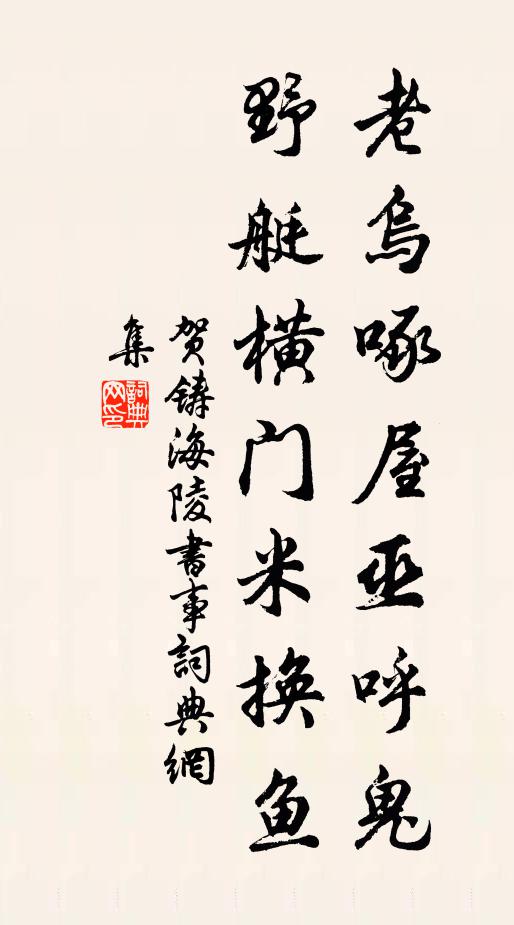 老乌啄屋巫呼鬼
野艇横门米换鱼
贺铸海陵書事詞典網
集
詞典
网印